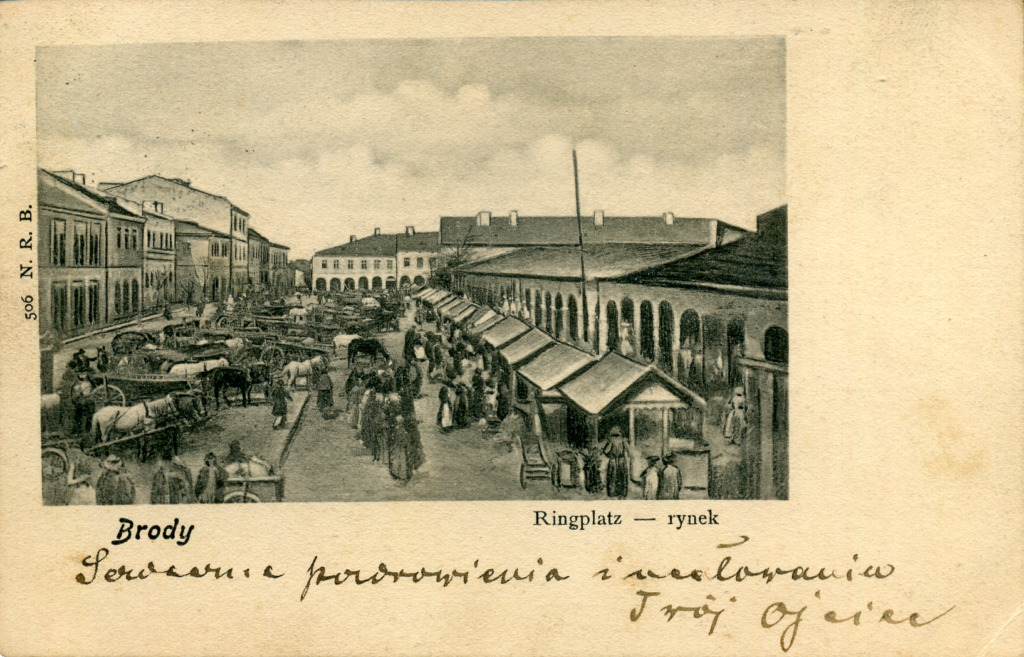 506 N. R. B.
Brody
Ringplatz — rynek
Serdeczne pozdrowienia i ucałowania
Twój Ojciec